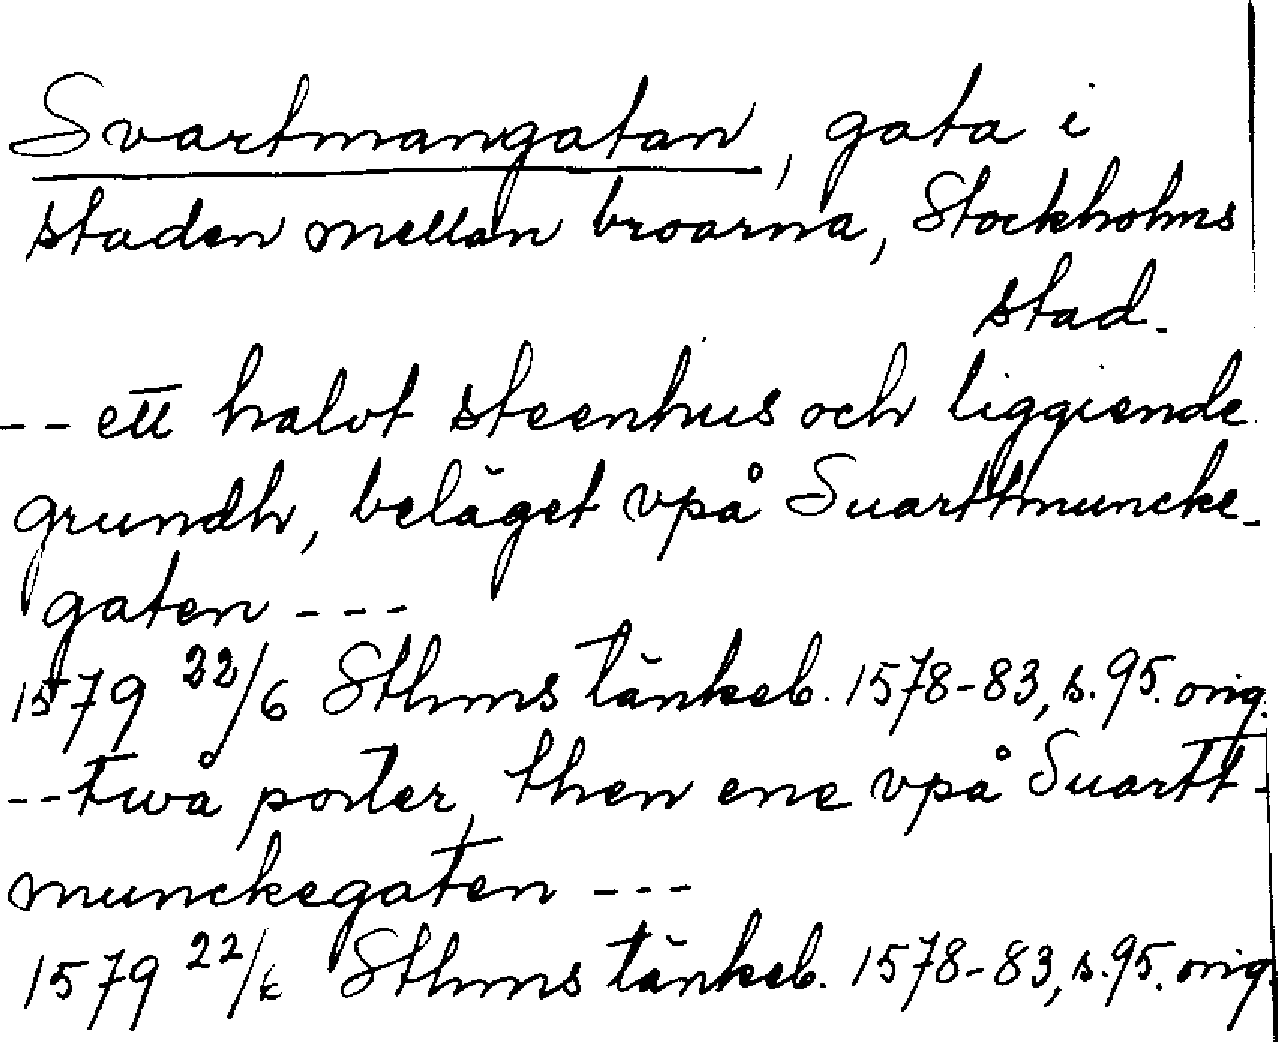 Svartmangatan, gata i
staden mellan broarna, Stockholms
stad.
-- ett halvt steenhus och liggiende
grundh, beläget vpå Suarttmuncke-
gaten ---
1579 22/6 Sthms tänkeb. 1578-83, s. 95. orig.
-- twå porter, then ene vpå Suartt-
munckegaten ---
1579 22/6 Sthms tänkeb. 1578-83, s. 95. orig.